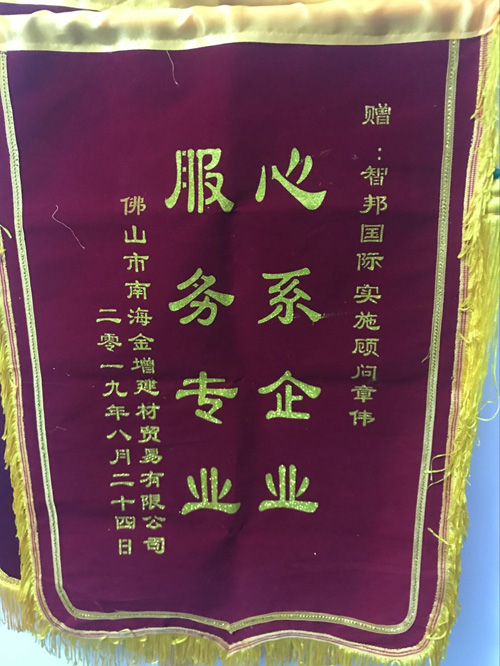 赠：智邦国际实施顾问章伟
心系企业
服务专业
佛山市南海金增建材贸易有限公司
二零一九年八月二十四日